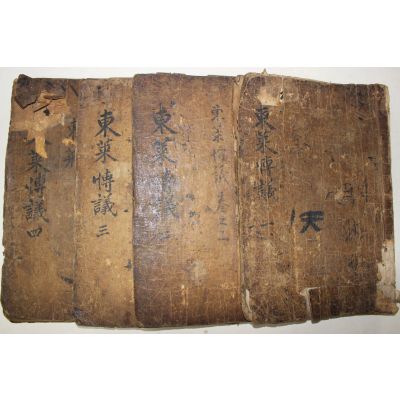 東萊博議 一
天
東萊博議卷之一
東萊博議 二
東萊博議 三
萊博議 四